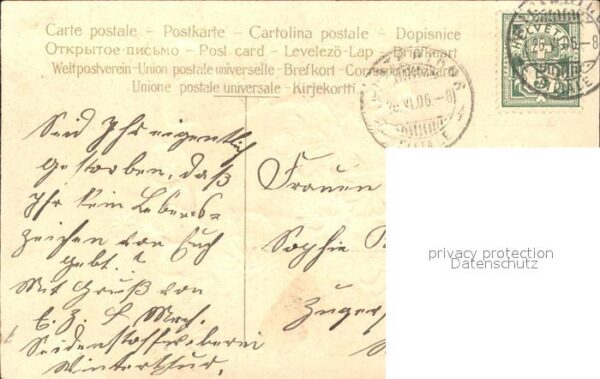 Carte postale – Postkarte – Cartolina postale – Dopisnice
Открытое письмо – Post card – Levelező-Lap – Briefkaart
Weltpostverein – Union postale universelle – Brefkort – Correspondenzkarte
Unione postale universale – Kirjekortti.
HELVETIA
5
26.VI.06.–8
FILIALE
Seid Ihr eigentlich
gestorben, daß
Ihr kein Lebens=
zeichen von Euch
gebt.?
Mit Gruß von
E. Z.
Seidenstoffweberei
Winterthur.
Frauen
Sophie
privacy protection
Datenschutz